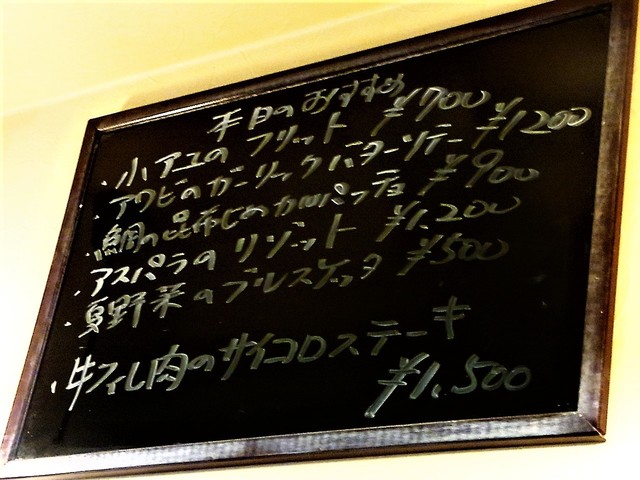 本日のおすすめ
・小アユのフリット ¥700
・アワビのガーリックバターソテー ¥1200
・鯛の昆布じめカルパッチョ ¥900
・アスパラのリゾット ¥1,200
・夏野菜のブルスケッタ ¥500
・牛フィレ肉のサイコロステーキ
¥1,500